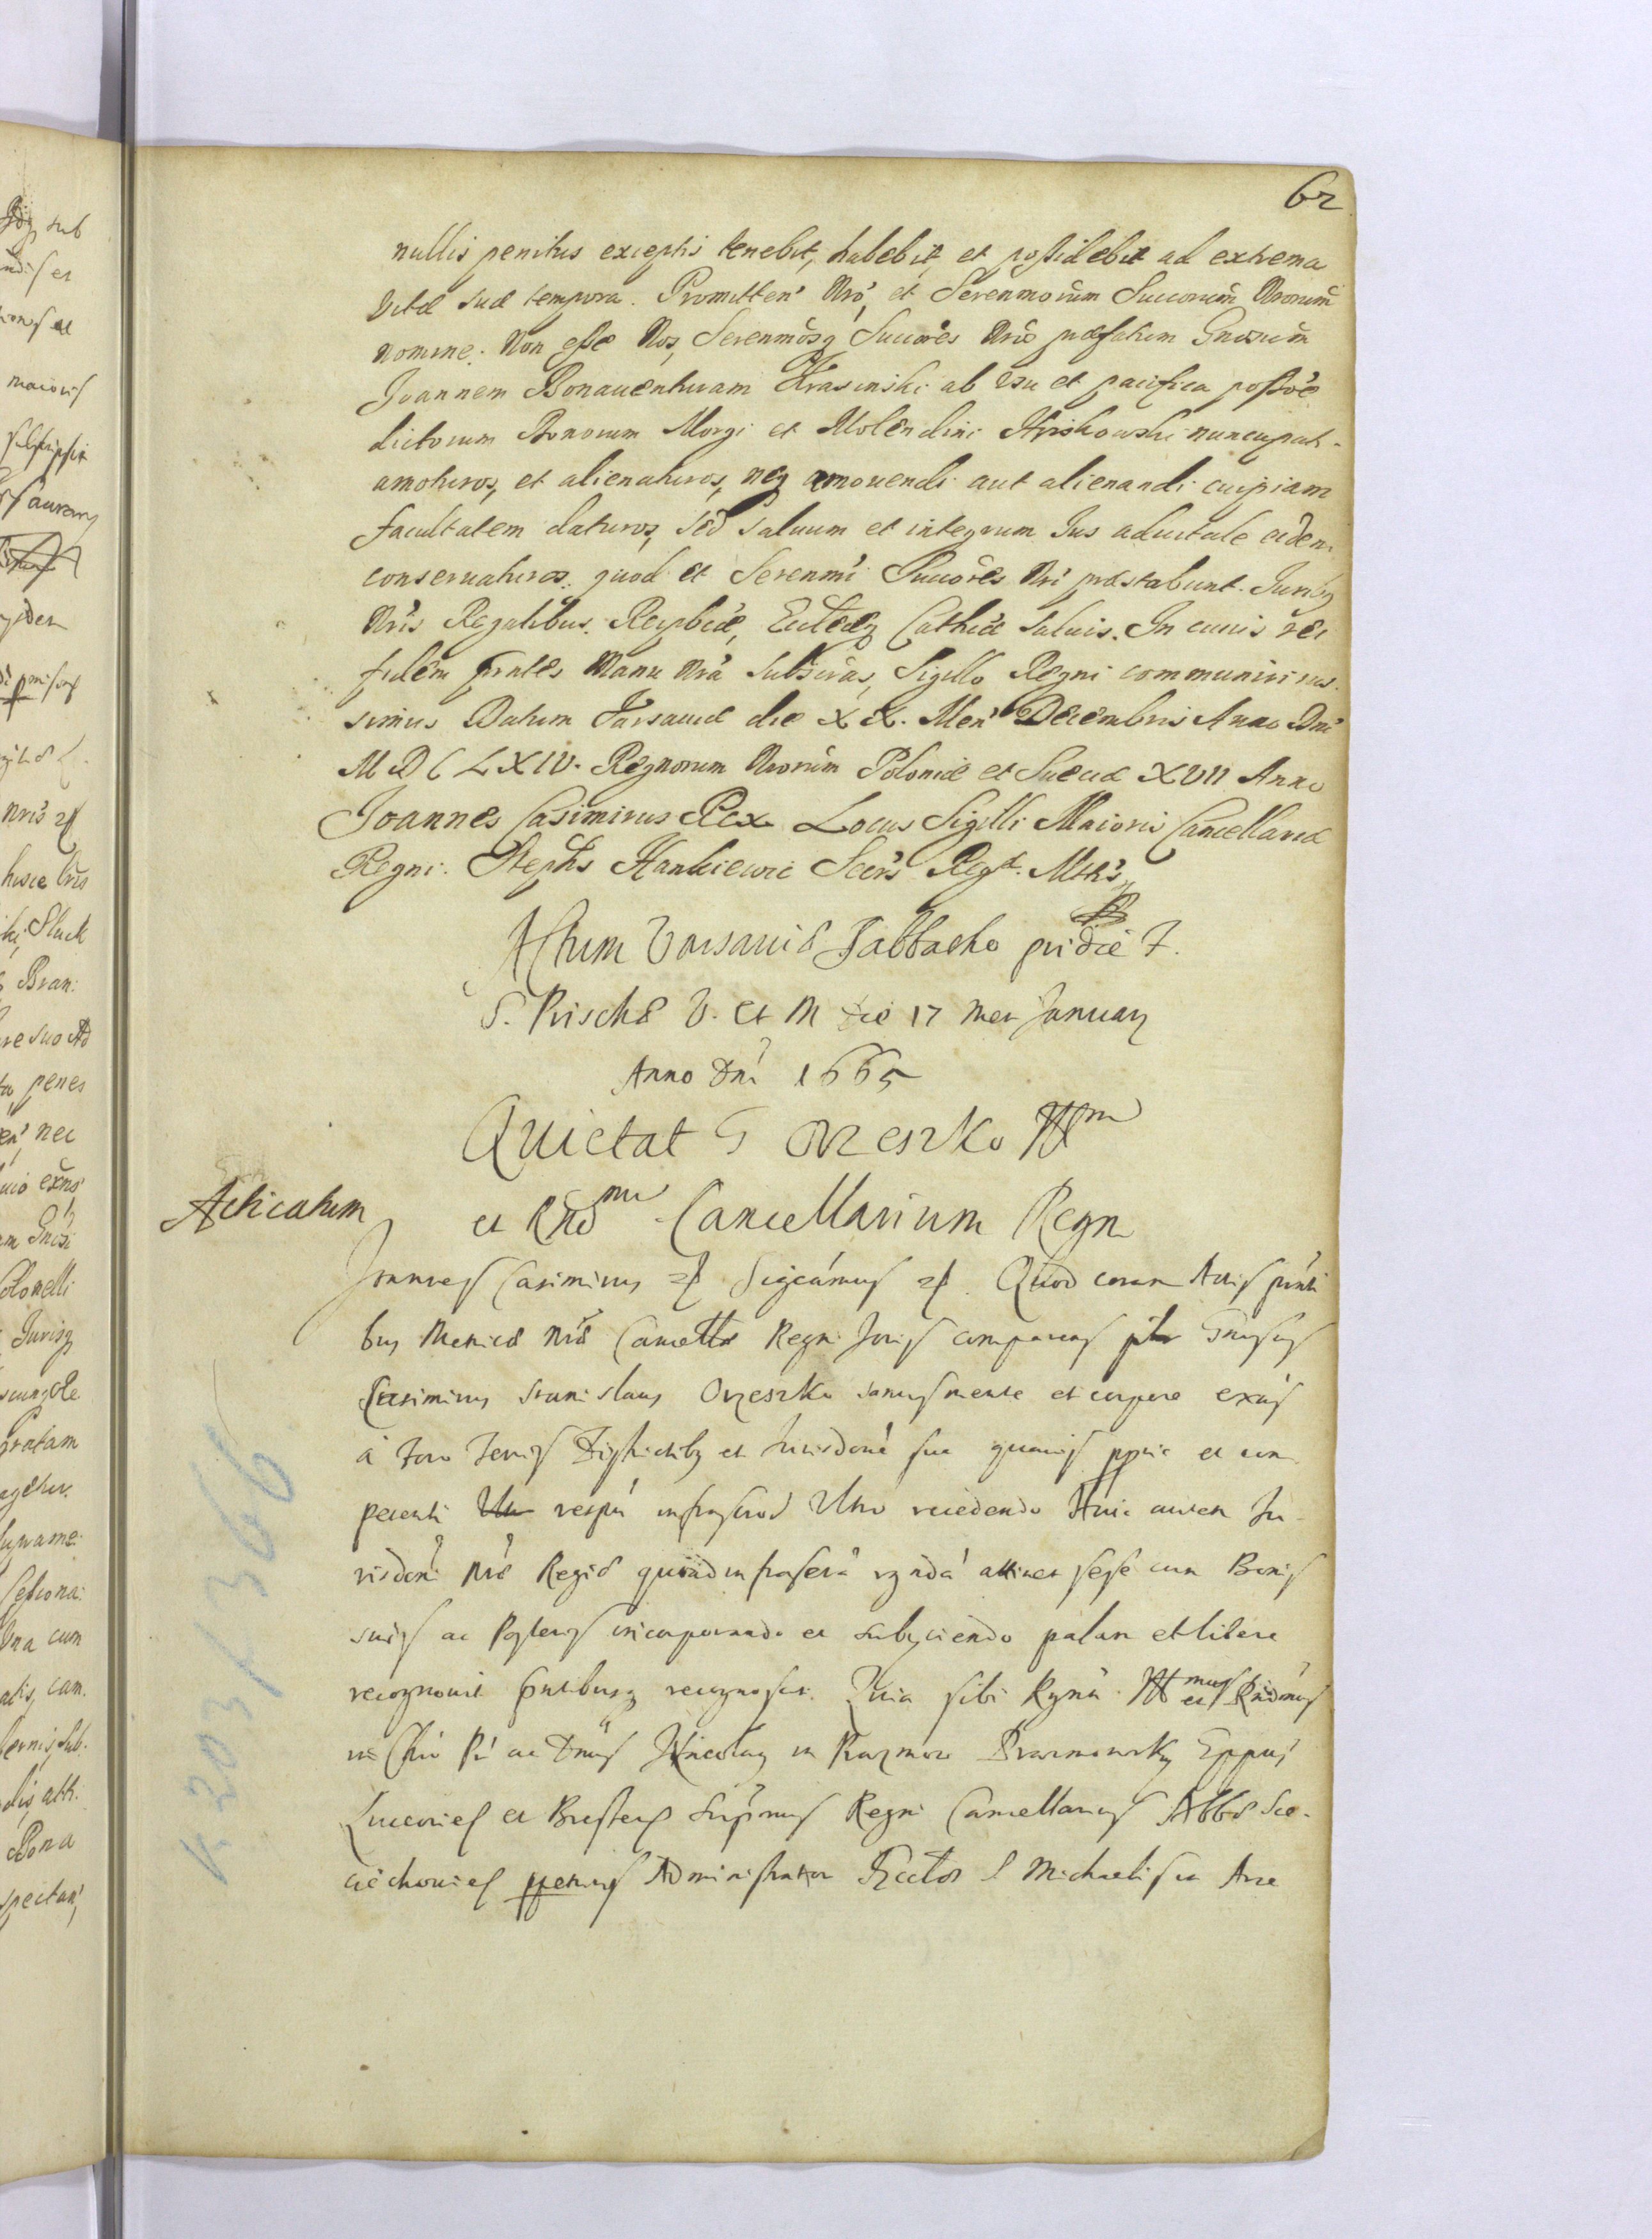 62
nullis penitus exceptis tenebit, habebit, et possidebit ad extrema
vitæ suæ tempora. Promitten' Nrō, et Serenmorum Succorum Nrorum
nomine. Non esse Nos, Serenmosq Succores Nros præfatum Gnosum
Joannem Bonauenturam Krasinski ab usu et pacifica possōe
dictorum Bonorum Morgi et Molendini nuncupat.
amoturos, et alienaturos, neq amouendi aut alienandi cuipiam
facultatem daturos, sed saluum et integrum Jus aduitale eidem
conseruaturos. quod et Serenmi Succores Nri præstabunt. Juribq
Nris Regalibus. Reipbcæ, Eccleæq Cathcæ saluis. In cuius rei
fidem pntes Manu Nrā Subscras, Sigillo Regni communiri ius-
simus Datum Varsauiæ die XX. Men' Decembris Anno Dni
MDCLXIV. Regnorum Nrorum Poloniæ et Sueciæ XVII Anno
Joannes Casimirus Rex Locus Sigilli Maioris Cancellariæ
Regni. Stephs Hankiewic Secrs Regæ. Mtis
Actum Varsauiæ Sabbatho pridie F.
S. Prischæ V. et M die 17 Men January
Anno Dni 1665
Quietat G Orzeszko Illm
Acticatum
et Rnd mm Cancellarium Regn
Joannes Casimirus Sigcamus Quod coram Actis pnti
bus Metrices Nræ Cancellæ Regni Joris comparens plr Gnosus
Casimirus Stanislaus Orzeszko sanus mente et corpore exns
a Foro Terris Districtibq et Jurisdone sua quauis ppria et com
petenti respu infrascrod Vltro recedendo Huic autem Ju-
risdoni Nræ Regiæ quoad infrascra attinet sese cum Bonis
suis ac Posteris incorporando et subijciendo palam et libere
recognouit pntibusq recognoscit. Quia sibi Illmus et Rndmus
in Chro Pr ac Dnus Nicolaus in Prazmow Prazmowsky Eppus
Luceorien et Bresten Supmus Regni Cancellarius Abbas Sie-
ciechouien ppetuus Administrator Ecclæ S Michaelis in Arce
K 203/366